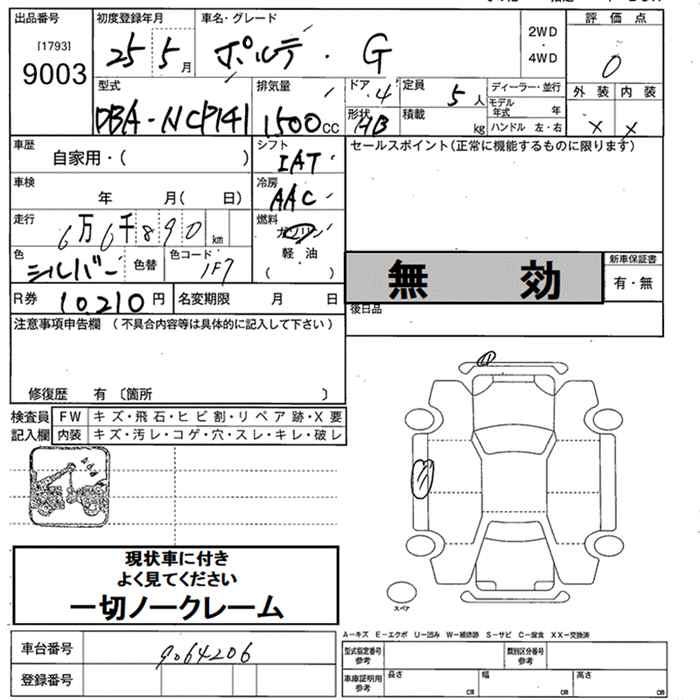 出品番号 初度登録年月 車名・グレード 評価点
[1793]
9003 25 5月 ポルテ・G 2WD・4WD 0
型式 排気量 ドア 定員 ディーラー・並行 外装 内装
DBA-NCP141 1500cc 4 5人 モデル年式 年 × ×
形状 HB 積載 kg ハンドル 左・右
車歴 シフト セールスポイント(正常に機能するものに限ります)
自家用・( ) IAT
車検 冷房
年 月( 日) AAC
走行 燃料
6万6千890km ガソリン
色 色コード 軽油 新車保証書
シルバー 色替 1F7 ( ) 無効 有・無
R券 10,210円 名変期限 月 日 後日品
注意事項申告欄 (不具合内容等は具体的に記入して下さい)
修復歴 有 〔箇所 〕
検査員 FW キズ・飛石・ヒビ割・リペア跡・X要
記入欄 内装 キズ・汚レ・コゲ・穴・スレ・キレ・破レ
現状車に付き
よく見てください
一切ノークレーム
スペア
A-キズ E-エクボ U-凹み W-補修跡 S-サビ C-腐食 XX-交換済
車台番号 9064206 型式指定番号 参考 類別区分番号 参考
登録番号 車庫証明用 参考 長さ cm 幅 cm 高さ cm